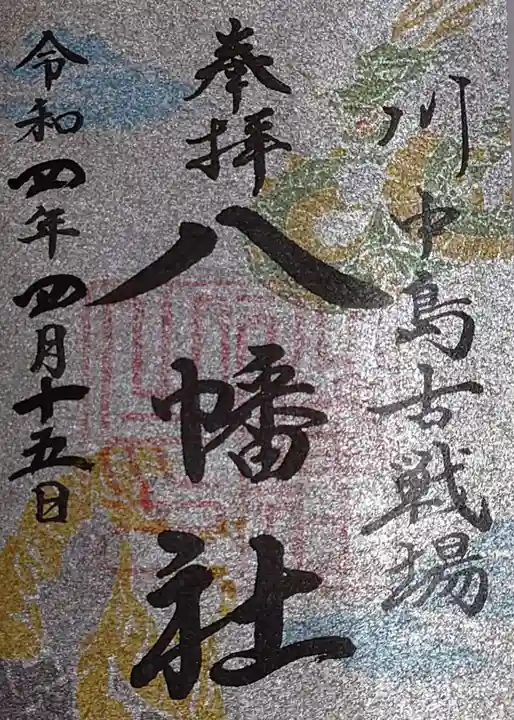 川中島古戦場
奉拝
八幡社
令和四年四月十五日